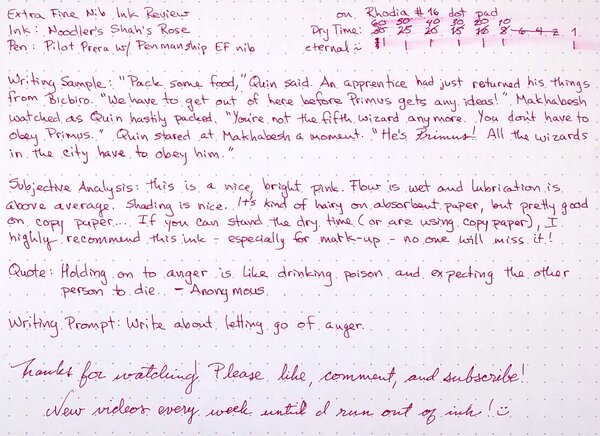 Extra Fine Nib Ink Review on Rhodia #16 dot pad
Ink: Noodler's Shah's Rose Dry Time: 60 50 40 30 20 10
Pen: Pilot Prera w/ Penmanship EF nib eternal
Writing Sample: "Pack some food," Quin said. An apprentice had just returned his things
from Bicbiro. "We have to get out of here before Primus gets any ideas!" Makhabesh
watched as Quin hastily packed. "You're not the fifth wizard anymore. You don't have to
obey Primus." Quin stared at Makhabesh a moment. "He's Primus! All the wizards
in the city have to obey him."
Subjective Analysis: this is a nice, bright pink. Flow is wet and lubriation is
above average. Shading is nice. It's kind of hairy on absorbent paper, but pretty good
on copy paper.... If you can stand the dry time (or are using copy paper), I
highly recommend this ink - especially for mark-up - no one will miss it!
Quote: Holding on to anger is like drinking poison and expecting the other
person to die. - Anonymous
Writing Prompt: Write about letting go of anger.
Thanks for watching! Please like, comment, and subscribe!
New videos every week until I run out of ink!